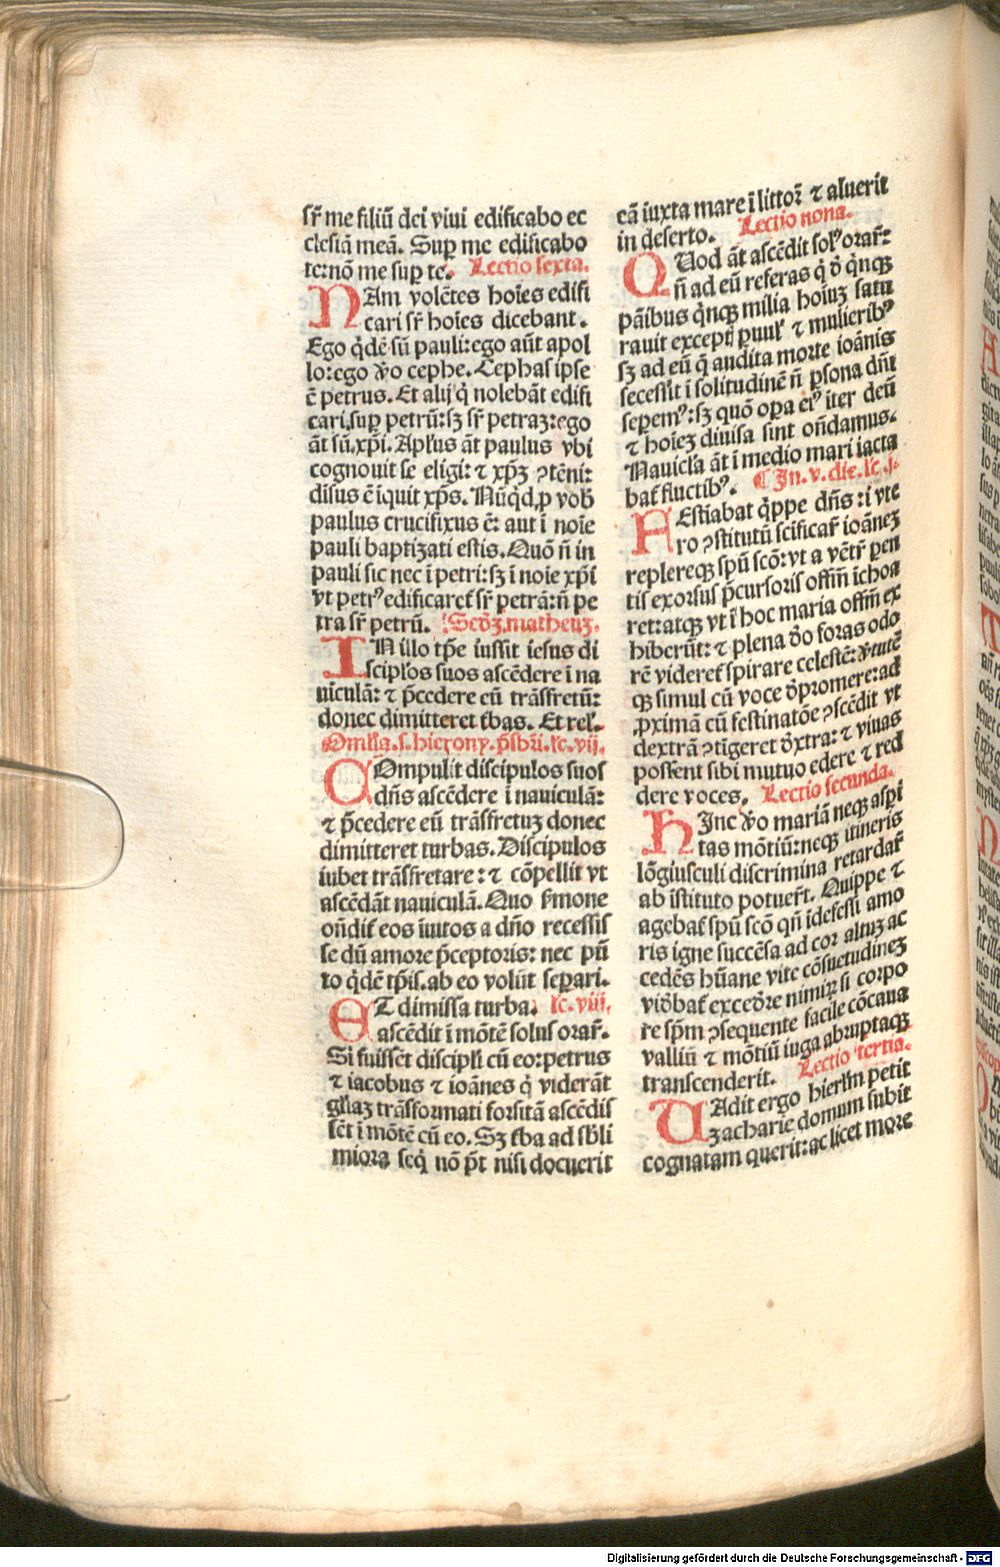 sr̄ me filiū dei viui edificabo ec
clesiā meā. Suꝑ me edificabo
te:nō me suꝑ te. Lectio sexta.
NAm volētes hoīes edifi
cari sr̄ hoīes dicebant.
Ego q̇dē sū pauli:ego aūt apol
lo:ego v̊o cephe. Cephas ipse
ē petrus. Et alij q̇ nolebāt edifi
cari.suꝑ petrū:sꝫ sr̄ petraꝫ:ego
āt sū.xp̄i. Apl̓us āt paulus vbi
cognouit se eligi: ⁊ xp̄ꝫ ꝯtēni:
disus ē iquit xp̄s. Nūq̇d ꝓ vob̄
paulus crucifixus ē: aut ī noīe
pauli baptizati estis. Quō n̄ in
pauli sic nec ī petri:sꝫ ī noīe xp̄i
vt petrꝰ edificaret̄ sr̄ petrā:n̄ pe
tra sr̄ petrū. Scd̄ꝫ.matheuꝫ.
IN illo tp̄e iussit iesus di
scipl̓os suos ascēdere ī na
uiculā: ⁊ p̄cedere eū trāsfretū:
donec dimitteret t̓bas. Et rel̓.
Omīlia.s.hierony.p̄sbr̄i.lc̄.vij.
COmpulit discipulos suos
dn̄s ascēdere ī nauiculā:
⁊ p̄cedere eū trāsfretuꝫ donec
dimitteret turbas. Discipulos
iubet trāsfretare: ⁊ cōpellit vt
ascēdāt nauiculā. Quo s̓mone
on̄dit̄ eos īuitos a dn̄o recessis
se dū amore p̄ceptoris: nec pū
to q̇dē tp̄is.ab eo volūt seꝑari.
ET dimissa turba. lc̄.viij.
ascēdit ī mōtē solus orar̄.
Si fuissēt discipl̓i cū eo:petrus
⁊ iacobus ⁊ ioānes q̇ viderāt
gl̓iaꝫ trāsformati forsitā ascēdis
sēt ī mōtē cū eo. Sꝫ t̓ba ad sb̓li
miora seq̇ nō p̄t nisi docuerit
eā iuxta mare ī littor̄ ⁊ aluerit
in deserto. Lectio nona.
QUod āt ascēdit solꝰ orar̄:
n̄ ad eū referas q̇ d̓ q̇nqꝫ
pāibus q̇nqꝫ milia hoīuꝫ satu
rauit except̄ ꝑuul̓ ⁊ mulieribꝰ
sꝫ ad eū q̇ audita morte ioānis
secessit ī solitudinē n̄ ꝑsona dn̄i
seꝑemꝰ:sꝫ quō oꝑa eiꝰ iter deū
⁊ hoieꝫ diuisa sint on̄damus.
Nauicl̓a āt ī medio mari iacta
bat̄ fluctibꝰ. ¶ In.v.die.lc̄.j.
AEstiabat q̇ppe dn̄s : ī vte
ro ꝯstitutū scificar̄ ioāneꝫ
replereqꝫ spū scō:vt a vētr̄ ꝑen
tis exorsus p̄cursoris offm̄ īchoa
ret:atqꝫ vt ī hoc maria offm̄ ex
hiberūt: ⁊ plena v̊o foras odo
rē videret̄ spirare celestē: v̓tutē
qꝫ simul cū voce d̓promere:ad
ꝓximā cū festinatōe ꝯscēdit vt
dextrā ꝯtigeret d̓xtra: ⁊ viuas
possent sibi mutuo edere ⁊ red
dere voces. Lectio secunda.
HInc v̊o mariā neqꝫ aspi
tas mōtiū:neqꝫ itineris
lōgiusculi discrimina retardar̄
ab īstituto potuer̄t. Quippe ⁊
agebat̄ spū scō qn̄ idefessi amo
ris igne succēsa ad cor altuꝫ ac
cedēs hūane vite cōsuetudineꝫ
vid̓bat̄ exced̓re nimiꝝ si corpo
re sp̄m ꝯsequente facile cōcaua
valliū ⁊ mōtiū iuga abruptaqꝫ
transcenderit. Lectio tertia.
UAdit ergo hierl̓m petit
zacharie domum subit
cognatam querit:ac licet more
Digitalisierung gefördert durch die Deutsche Forschungsgemeinschaft - DFG